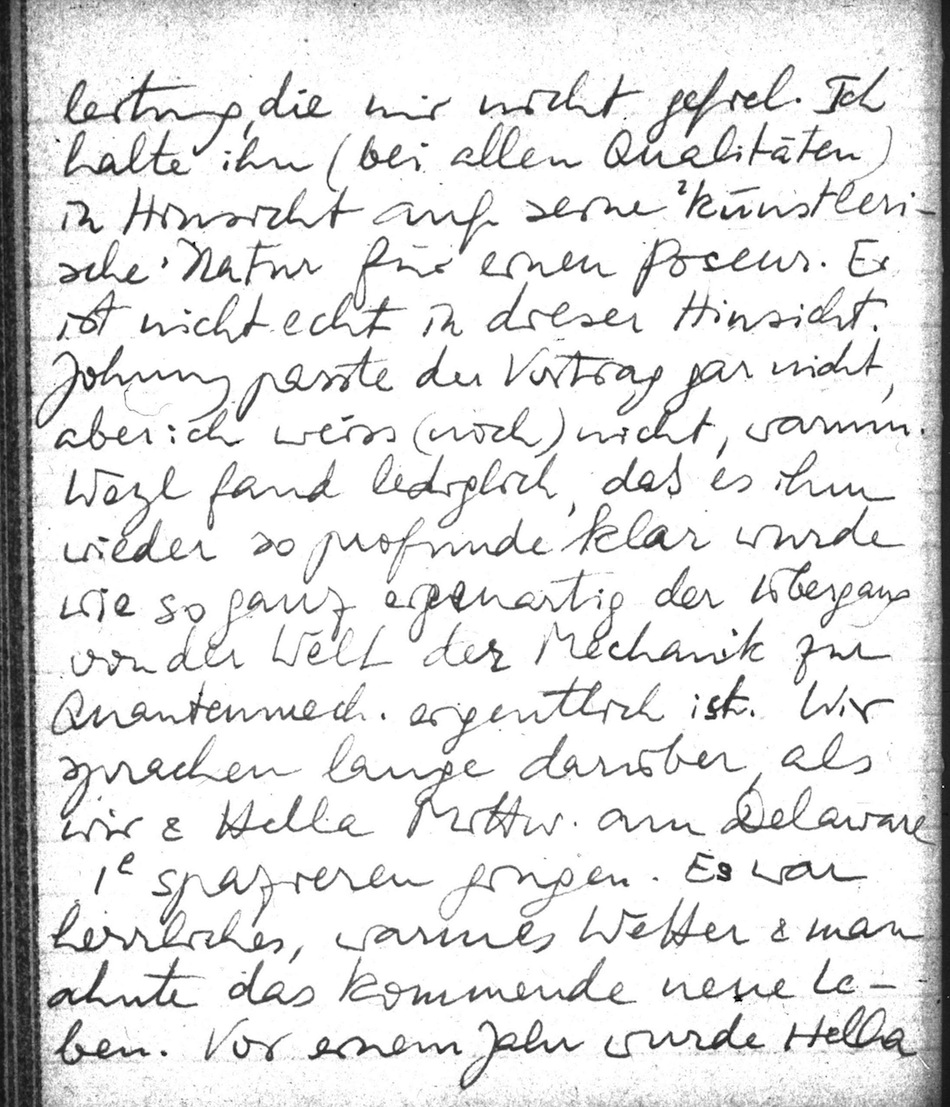 leitung, die mir nicht gefiel. Ich
halte ihn (bei allen Qualitäten)
in Hinsicht auf seine "künstleri-
sche" Natur für einen Poseur. Er
ist nicht echt in dieser Hinsicht.
Johnny passte der Vortrag gar nicht,
aber ich weiss (noch) nicht, warum.
Weyl fand lediglich, daß es ihm
wieder so profunde klar wurde
wie so ganz eigenartig der Übergang
von der Welt der Mechanik zur
Quantenmech. eigentlich ist. Wir
sprachen lange darüber, als
wir & Hella am Delaware
spazieren gingen. Es war
herrliches, warmes Wetter & man
ahnte das kommende neue Le-
ben. Vor einem Jahr wurde Hella